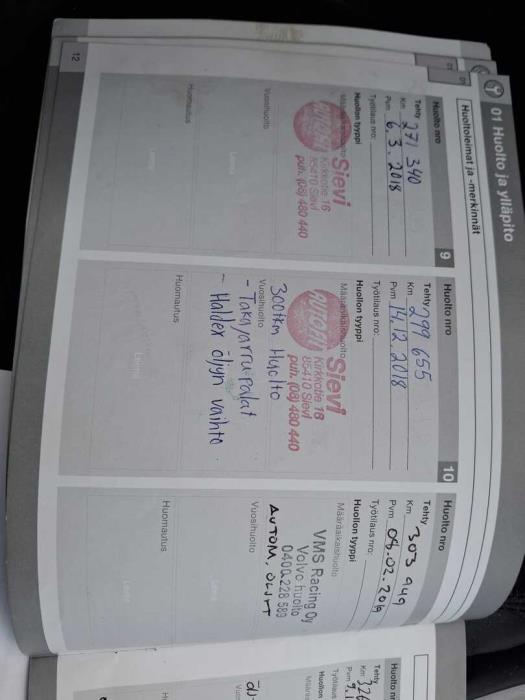 01 Huolto ja ylläpito
Huoltoleimat ja -merkinnät
Huolto nro
9
Tehty
Km 271 340
Pvm 6.3.2018
Työtilaus nro:
Huollon tyyppi
Määräaikaishuolto
Sievi
Kirkkotie 16
85410 Sievi
puh. (08) 480 440
Vuosihuolto
Huomautus
Leima
Huolto nro
10
Tehty
Km 299 655
Pvm 14.12.2018
Työtilaus nro:
Huollon tyyppi
Määräaikaishuolto
Sievi
Kirkkotie 16
85410 Sievi
puh. (08) 480 440
300tkm Huolto
Vuosihuolto
- Takajarrupalat
- Haldex öljyn vaihto.
Huomautus
Leima
Huolto nro
Tehty
Km 303 949
Pvm 08.02.2019
Työtilaus nro:
Huollon tyyppi
Määräaikaishuolto
VMS Racing Oy
Volvo huolto
0400 228 589
AUTOM. ÖLJYT
Vuosihuolto
Huomautus
Huolto
Tehty
Km
Pvm
Työtilaus
Huollon
12